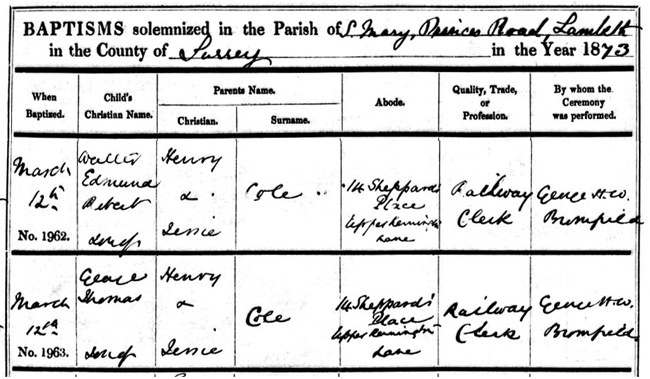 BAPTISMS solemnized in the Parish of St. Mary, Princes Road, Lambeth
in the County of Surrey in the Year 1873
When Baptized.
Child's Christian Name.
Parents Name.
Christian.
Surname.
Abode.
Quality, Trade, or Profession.
By whom the Ceremony was performed.
March 12th
No. 1962.
Walter
Edmund
Robert
son of
Henry
&
Jessie
Cole
14 Sheppard's
Place
Upper Kennington
Lane
Railway
Clerk
George H. W.
Bromfield
March
12th
No. 1963.
George
Thomas
son of
Henry
&
Jessie
Cole
14 Sheppard's
Place
Upper Kennington
Lane
Railway
Clerk
George H. W.
Bromfield